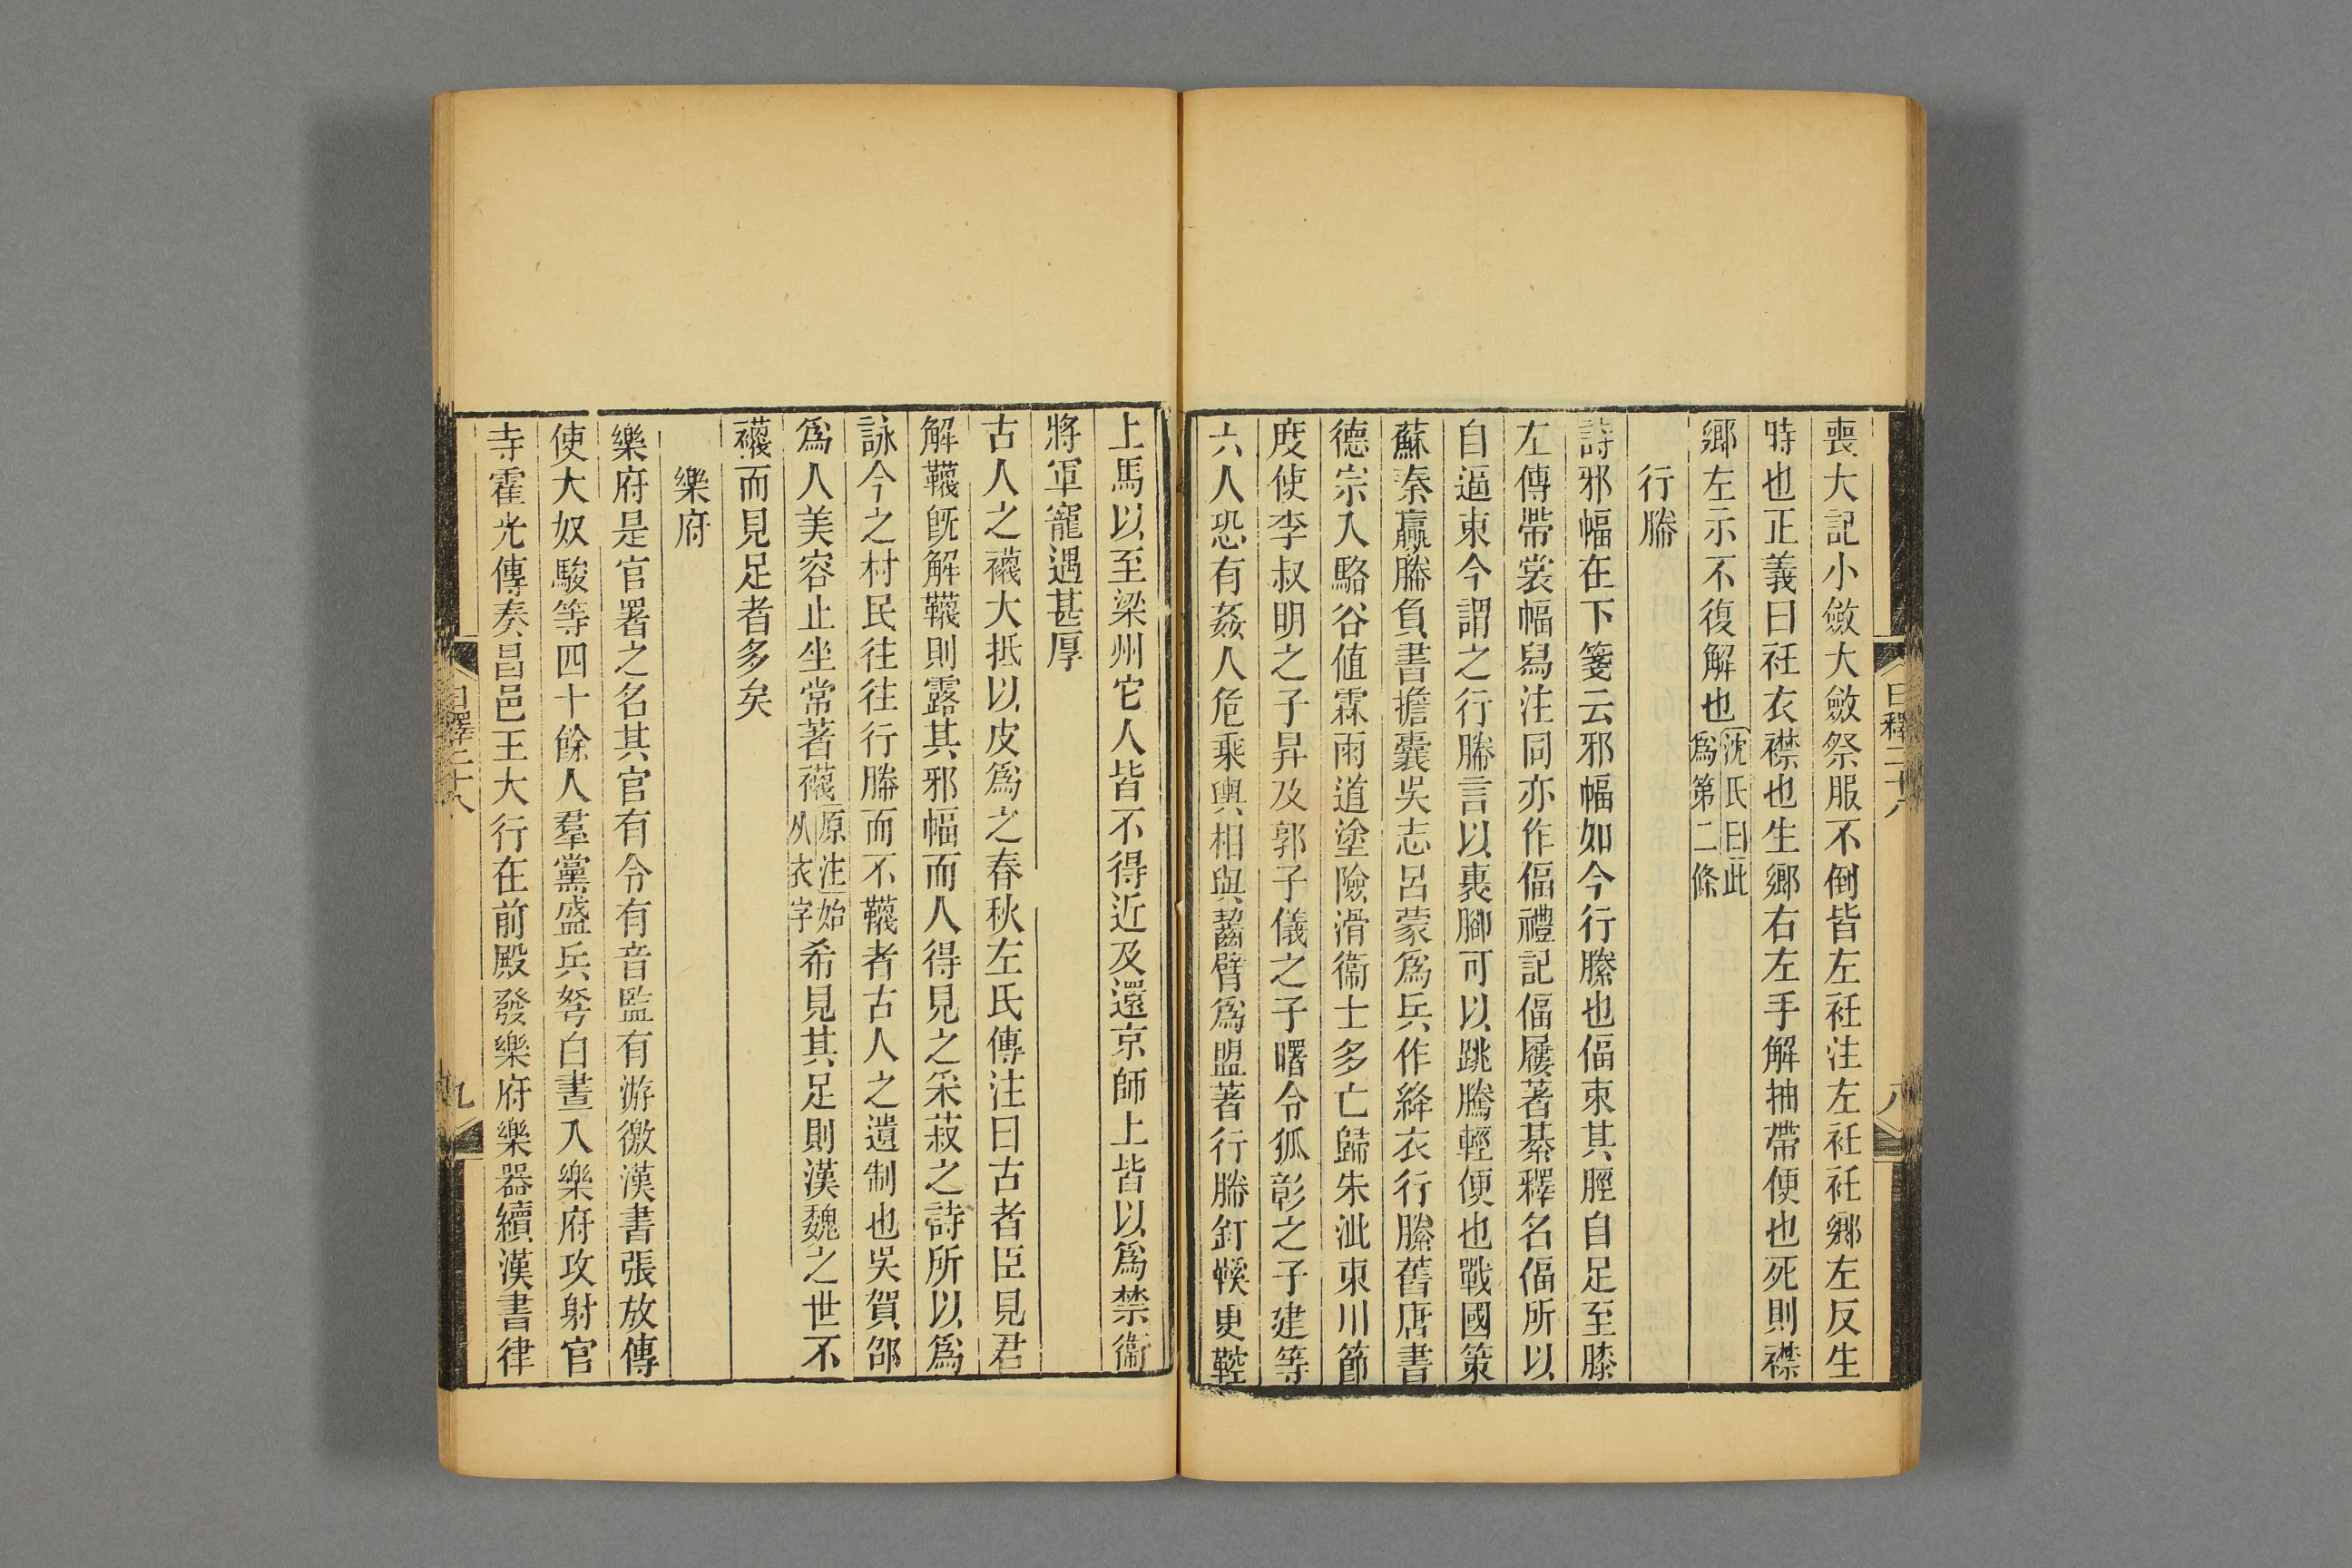 喪大記小斂大斂祭服不倒皆左衽注左衽衽鄉左反生
時也正義曰衽衣襟也生鄉右左手解抽帶便也死則襟
鄉左示不復解也沈氏曰此爲第二條
行縢
詩邪幅在下箋云邪幅如今行縢也偪束其脛自足至膝
左傳帶裳幅舄注同亦作偪禮記偪屨著綦釋名偪所以
自逼束今謂之行縢言以裹腳可以跳騰輕便也戰國策
蘇秦羸縢負書擔囊吳志呂蒙爲兵作絳衣行縢舊唐書
德宗入駱谷值霖雨道塗險滑衞士多亡歸朱泚東川節
度使李叔明之子昇及郭子儀之子曙令狐彰之子建等
六人恐有姦人危乘輿相與齧臂爲盟著行縢釘鞵更鞚
日釋二十八
八
上馬以至梁州它人皆不得近及還京師上皆以爲禁衞
將軍寵遇甚厚
古人之襪大抵以皮爲之春秋左氏傳注曰古者臣見君
解韈旣解韈則露其邪幅而人得見之采菽之詩所以爲
詠今之村民往往行縢而不韈者古人之遺制也吳賀邵
爲人美容止坐常著襪原注始从衣字希見其足則漢魏之世不
襪而見足者多矣
樂府
樂府是官署之名其官有令有音監有游徼漢書張放傳
使大奴駿等四十餘人羣黨盛兵弩白晝入樂府攻射官
寺霍光傳奏昌邑王大行在前殿發樂府樂器續漢書律
日釋二十八
九